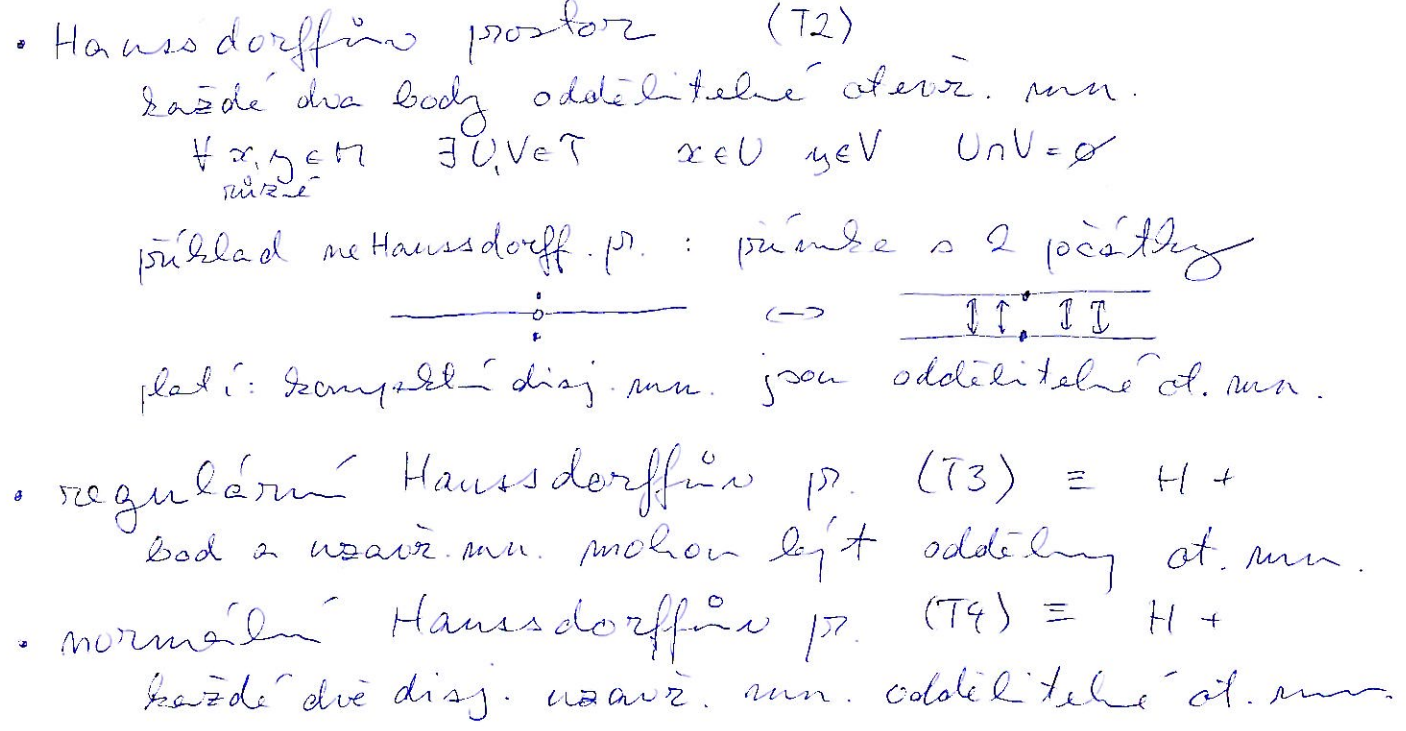 • Haussdorffův prostor (T2)
každé dva body oddělitelné otevř. mn.
∀ x,y ∈ M ∃ U,V ∈ T x ∈ U y ∈ V U ∩ V = ∅
různé
příklad neHaussdorff. pr. : přímka s 2 počátky
↔
platí: kompaktní disj. mn. jsou oddělitelné ot. mn.
• regulární Haussdorffův pr. (T3) ≡ H +
bod a uzavř. mn. mohou být odděleny ot. mn.
• normální Haussdorffův pr. (T4) ≡ H +
každé dvě disj. uzavř. mn. oddělitelné ot. mn.